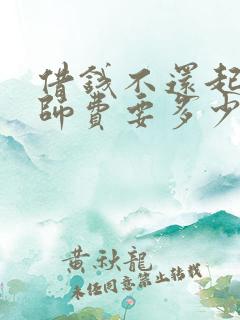 借錢不還起
師費要多少
黄秋龍
未經同意禁止轉載